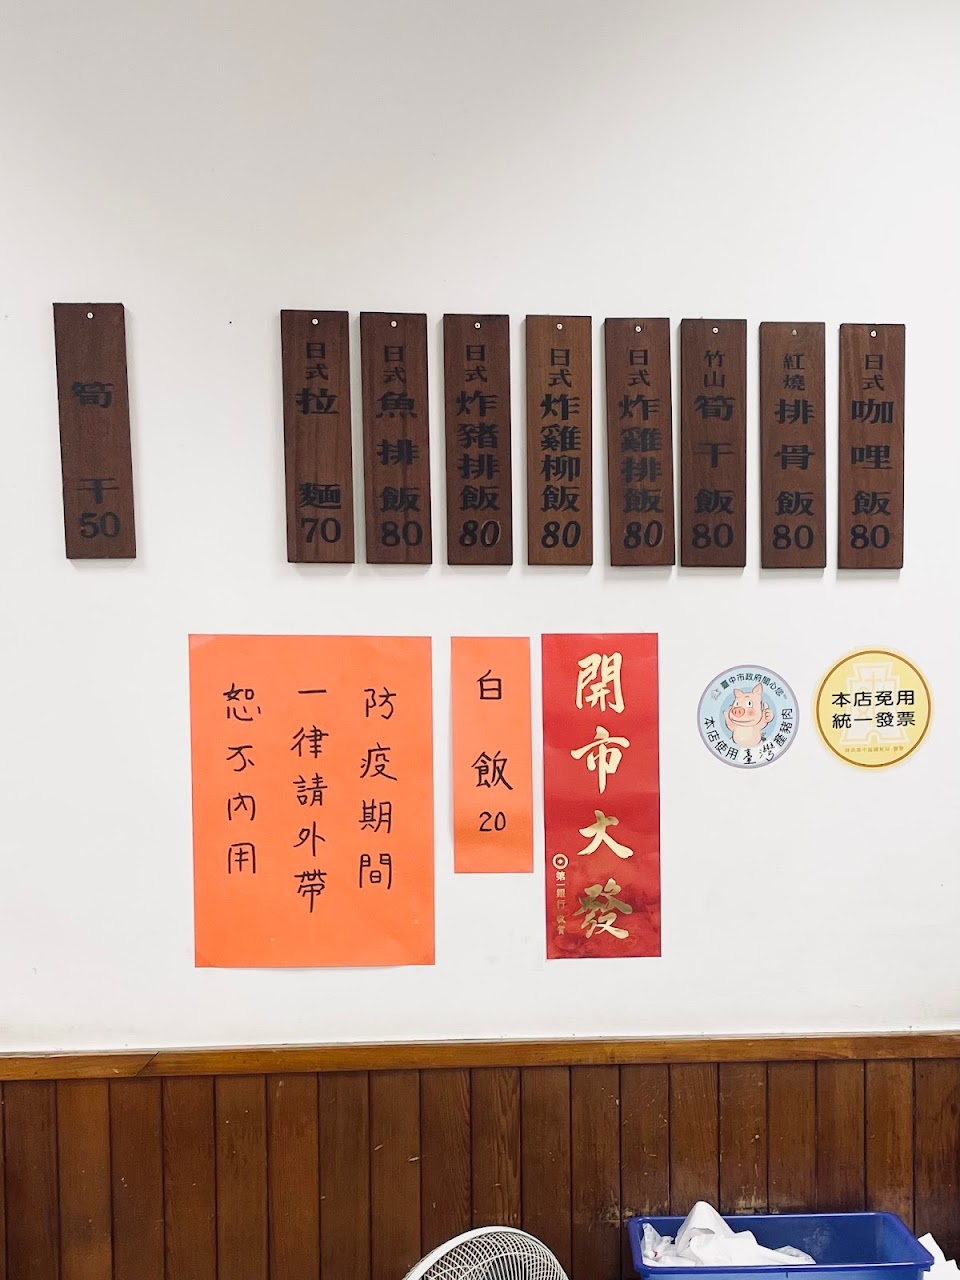 日式咖哩飯80
紅燒排骨飯80
竹山筍干飯80
日式炸雞排飯80
日式炸雞柳飯80
日式炸豬排飯80
日式魚排飯80
日式拉麵70
筍干50
防疫期間
一律請外帶
恕不內用
白飯20
開市大發
第一銀行 敬賀
臺中市政府關心您
本店使用臺灣產豬肉
本店免用
統一發票